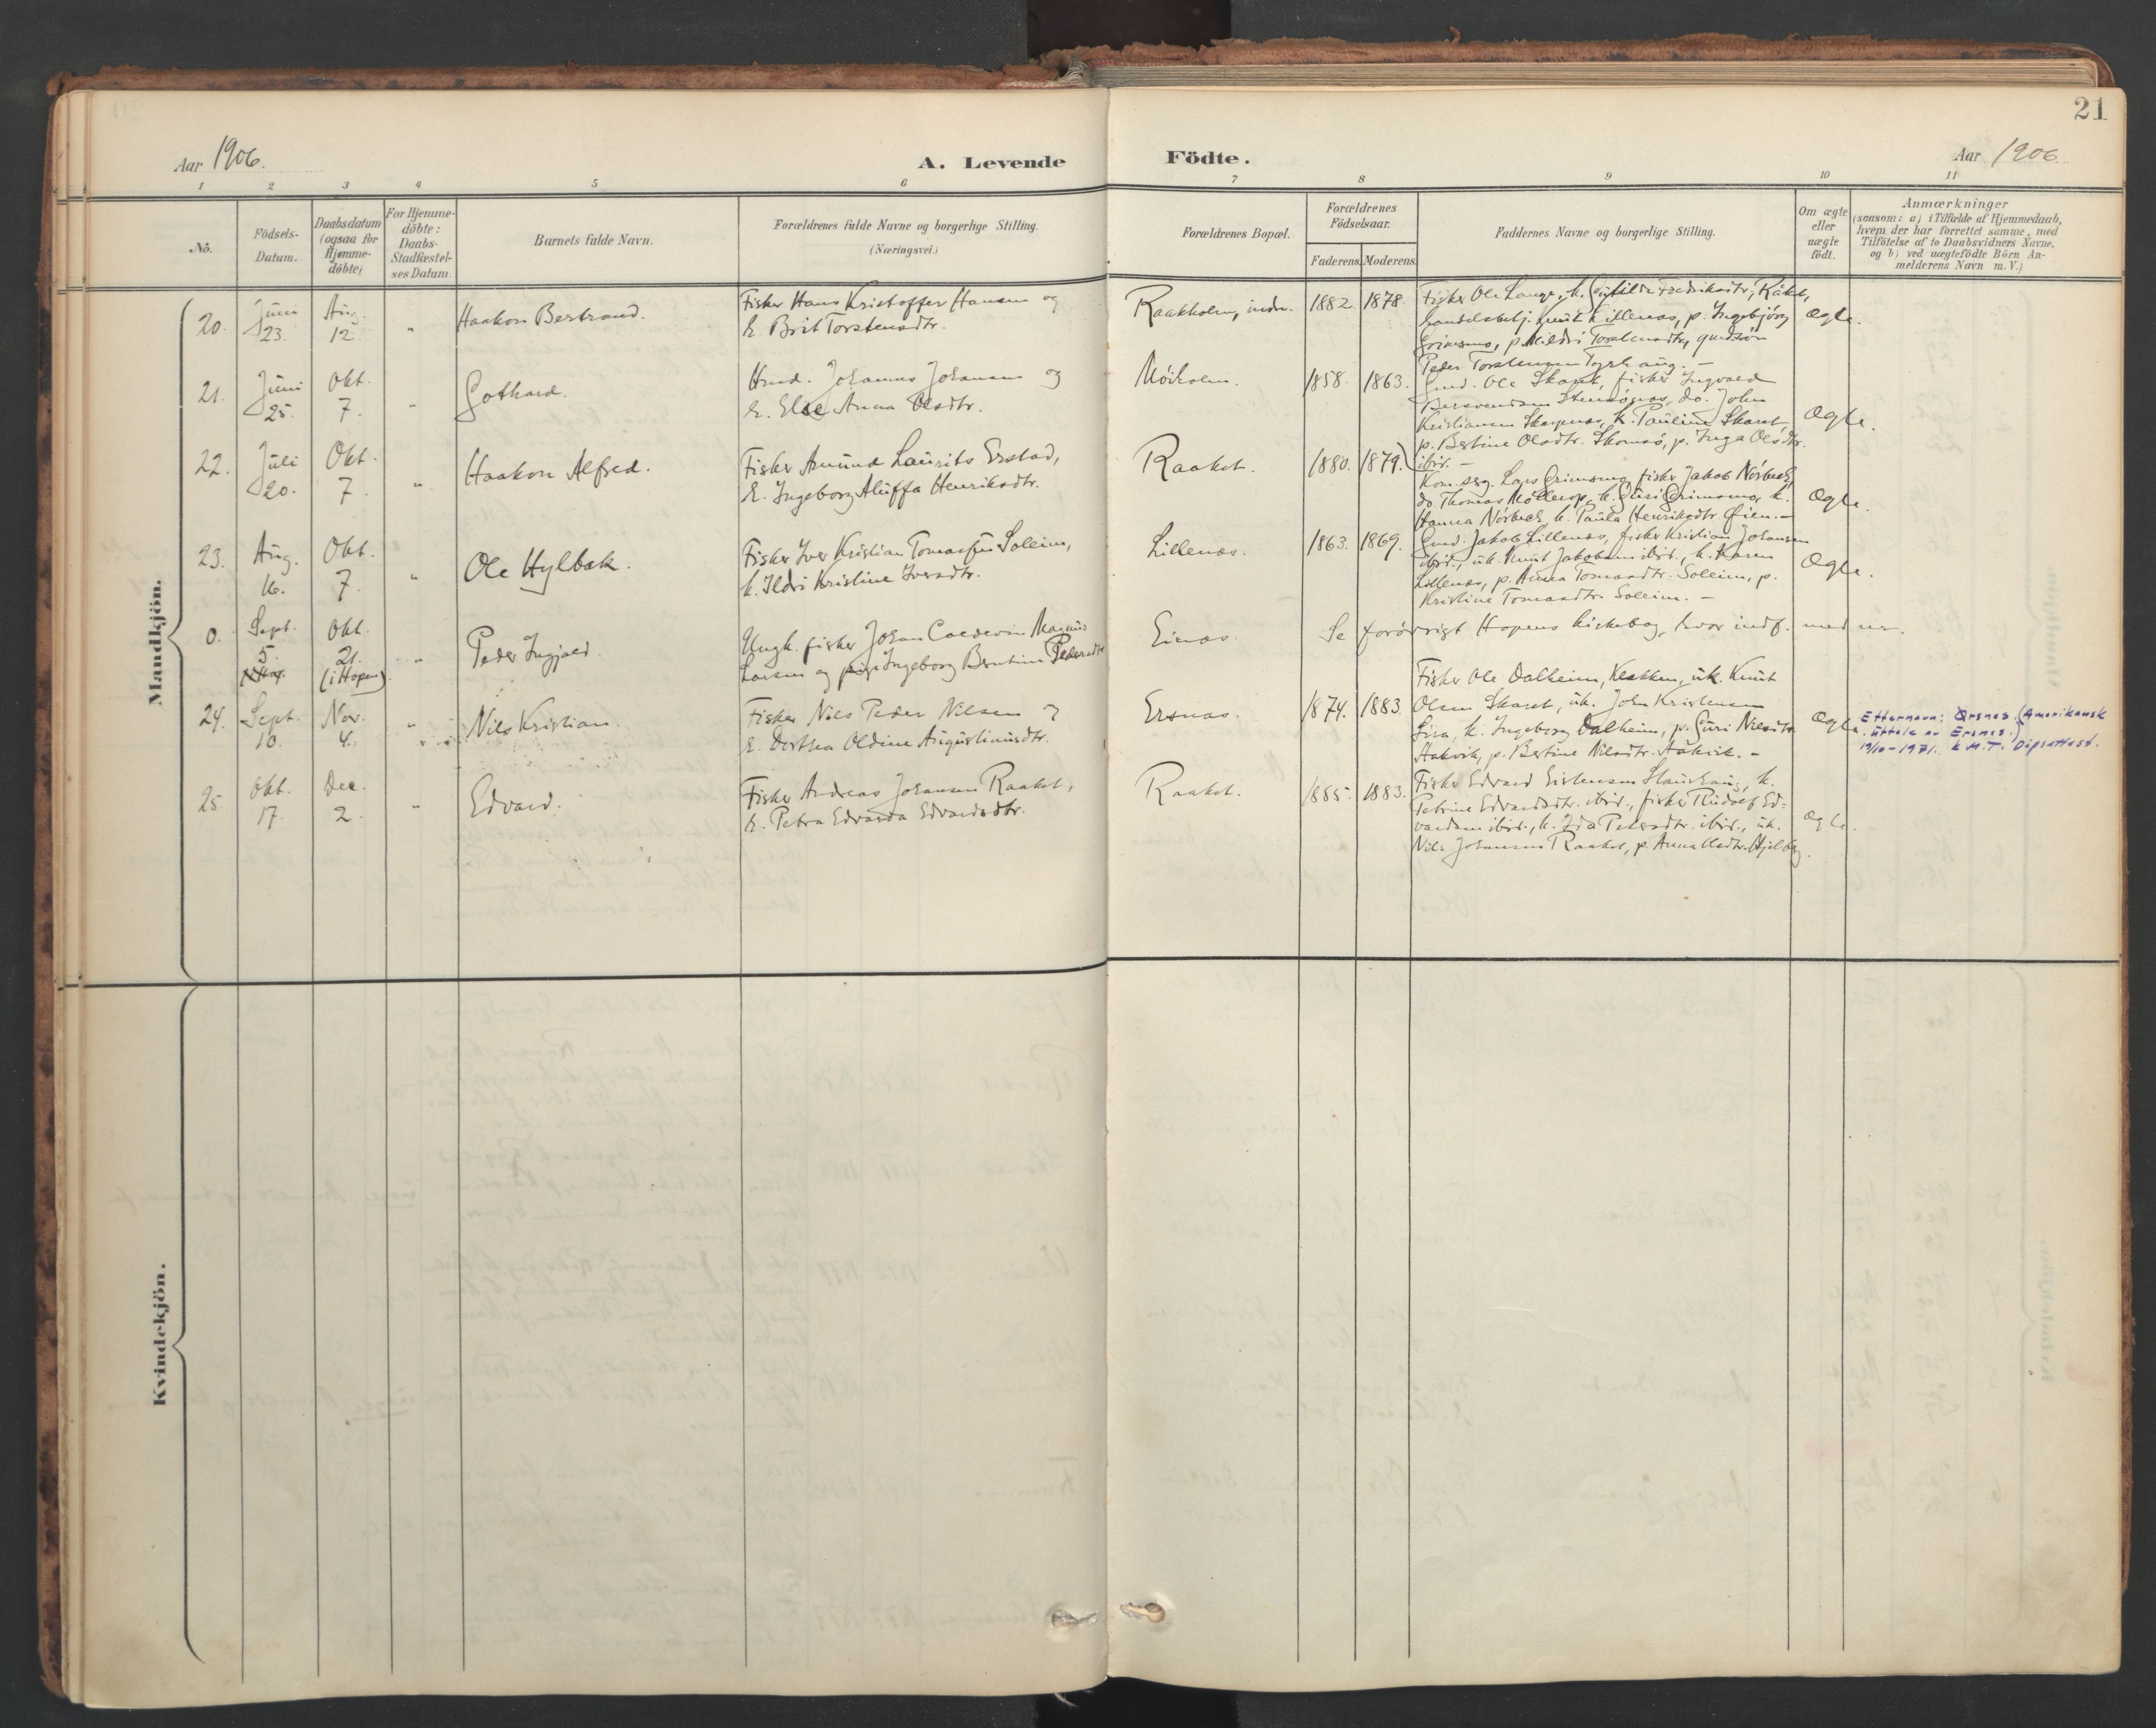 21
Aar 1906.
A. Levende Födte.
Aar 1906
1 2 3 4 5 6 7 8 9 10 11
No.
Födsels-
Datum.
Daabsdatum
(ogsaa for
Hjemme-
döbte)
For Hjemme-
döbte:
Daabs-
Stadfæstel-
ses Datum.
Barnets fulde Navn.
Forældrenes fulde Navne og borgerlige Stilling.
(Næringsvei.)
Forældrenes Bopæl.
Forældrenes
Födselsaar.
Faderens Moderens
Faddernes Navne og borgerlige Stilling.
Om ægte
eller
uægte
födt.
Anmærkninger
(saasom: a) i Tilfælde af Hjemmedaab,
hvem der har forrettet samme, med
Tilföielse af to Daabsvidners Navne,
og b) ved uægtefödte Börn An-
melderens Navn m. V.)
Mandkjön.
20.
Juni
23.
Aug.
12.
"
Haakon Bertrand.
Fisker Hans Kristoffer Hansen og
h. Brit Torstensdtr.
Raakholm, indr.
1882. 1878.
Fisker Ole Lange, h. Fredriksdtr, Råket,
handelsbetj. Knut Lillenæs, p. Ingebjörg
Grimsmo, p. Mildri Torstensdtr,
Peder Torstensen
Ægte.
21.
Juni
25.
Okt.
7.
"
Gothard.
Gmd. Johannes Johansen og
h. Else Anna Olsdtr.
Möiholm.
1858. 1863.
Gmd. Ole Skaret, fisker Ingvald
Bersvendsen Stensönæs, do. John
Kristiansen Skarpnæs, h. Pauline Skaret,
p. Bertine Olsdtr. Skomsö, p. Inga Olsdtr.
ibid. -
Ægte.
22.
Juli
20.
Okt.
7.
"
Haakon Alfred.
Fisker Amund Laurits Erstad,
h. Ingeborg Aluffa Henriksdtr.
Raaket.
1880. 1879.
Lars Grimsmo, fisker Jakob Nörbeck,
do. Thomas Mollerop, h. Guri Grimsmo, h.
Hanna Nörbeck, h. Paula Henriksdtr. Öien. -
Ægte.
23.
Aug.
16.
Okt.
7.
"
Ole Hylbak.
Fisker Iver Kristian Tomassen Soleim,
h. Ildri Kristine Iversdtr.
Lillenæs.
1863. 1869.
Gmd. Jakob Lillenæs, fisker Kristian Johansen
ibid., uk. Knut Jakobsen ibid., h. Karen
Lillenæs, p. Anna Tomasdtr. Soleim, p.
Kristine Tomasdtr. Soleim. -
Ægte.
0.
Sept.
5.
Okt.
21.
(i Hopen)
"
Peder Ingjald.
Ungk. fisker Johan Caldevin Magnus
Larsen og pige Ingeborg Berntine Pedersdtr
Einæs.
Se forövrigt Hopens kirkebog, hvor indf. med nr.
24.
Sept.
10.
Nov.
4.
"
Nils Kristian.
Fisker Nils Peder Nilsen og
h. Dorthea Oldine Augustinusdtr.
Ersnæs.
1874. 1883.
Fisker Ole Dalheim, Klakken, uk. Knut
Olsen Skaret, uk. John Kristensen
Lira, h. Ingeborg Dalheim, p. Guri Nilsdtr.
Aakvik, p. Bertine Nilsdtr. Aakvik. -
Ægte.
Etternavn: Orsnes. (Amerikansk
uttale av Ersnes.)
19/10-1971. k M.T. Dåpsattest.
25.
Okt.
17.
Dec.
2.
"
Edvard.
Fisker Andreas Johansen Raaket,
h. Petra Edvarda Edvardsdtr.
Raaket.
1885. 1883.
Fisker Edvard Eistensen Staurhaug, h.
Petrine Edvardsdtr. ibid., fisker Rudolf Ed-
vardsen ibid., h. Ida Petersdtr. ibid., uk.
Nils Johansen Raaket, p. Anna Olsdtr. Hjelby.
Ægte.
Kvindekjön.